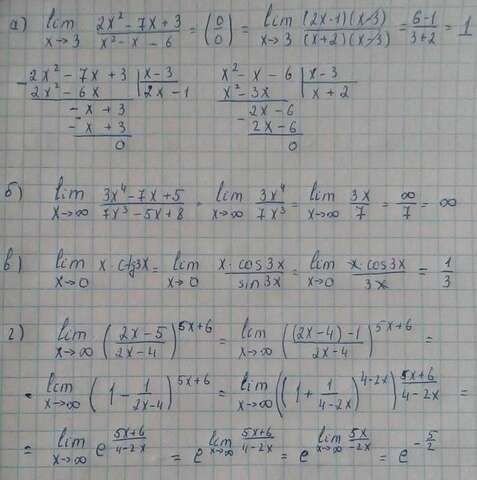 а) lim x→3 (2x² - 7x + 3)/(x² - x - 6) = (0/0) = lim x→3 ((2x-1)(x-3))/((x+2)(x-3)) = (6-1)/(3+2) = 1
- 2x² - 7x + 3 | x - 3
2x² - 6x | 2x - 1
- - x + 3
- x + 3
0
x² - x - 6 | x - 3
x² - 3x | x + 2
- 2x - 6
2x - 6
0
б) lim x→∞ (3x⁴ - 7x + 5)/(7x³ - 5x + 8) = lim x→∞ 3x⁴/7x³ = lim x→∞ 3x/7 = ∞/7 = ∞
в) lim x→0 x · ctg3x = lim x→0 (x · cos3x)/(sin3x) = lim x→0 (x · cos3x)/(3x) = 1/3
г) lim x→∞ ((2x-5)/(2x-4))^(5x+6) = lim x→∞ (((2x-4)-1)/(2x-4))^(5x+6) =
= lim x→∞ (1 - 1/(2x-4))^(5x+6) = lim x→∞ ((1 + 1/(4-2x))^(4-2x))^((5x+6)/(4-2x)) =
= lim x→∞ e^((5x+6)/(4-2x)) = e^(lim x→∞ (5x+6)/(4-2x)) = e^(lim x→∞ 5x/-2x) = e^(-5/2)